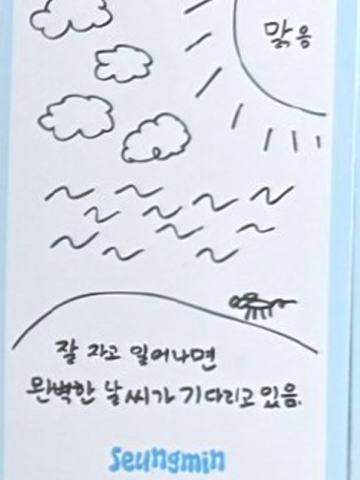 맑음
잘 자고 일어나면
완벽한 날씨가 기다리고 있음.
seungmin